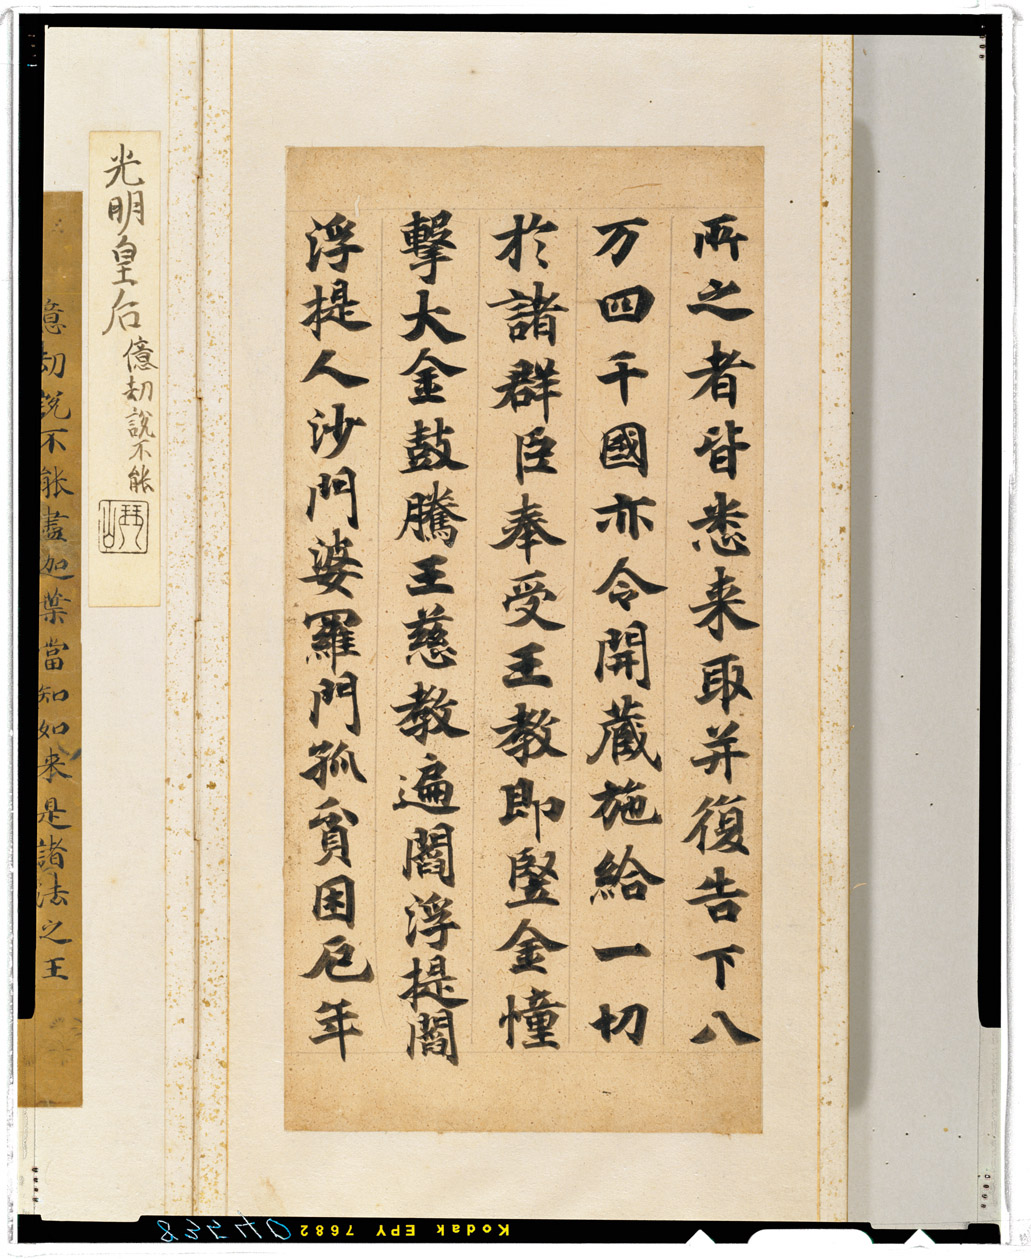 所之者皆悉来取并復告下八
万四千國亦令開蔵施給一切
於諸群臣奉受王教即竪金幢
擊大金鼓騰王慈教遍閻浮提閻
浮提人沙門婆羅門孤貧困厄年
光明皇后
億劫説不能
琴山
億劫説不能盡迦葉當知如来是諸法之王
Kodak EPY 7682